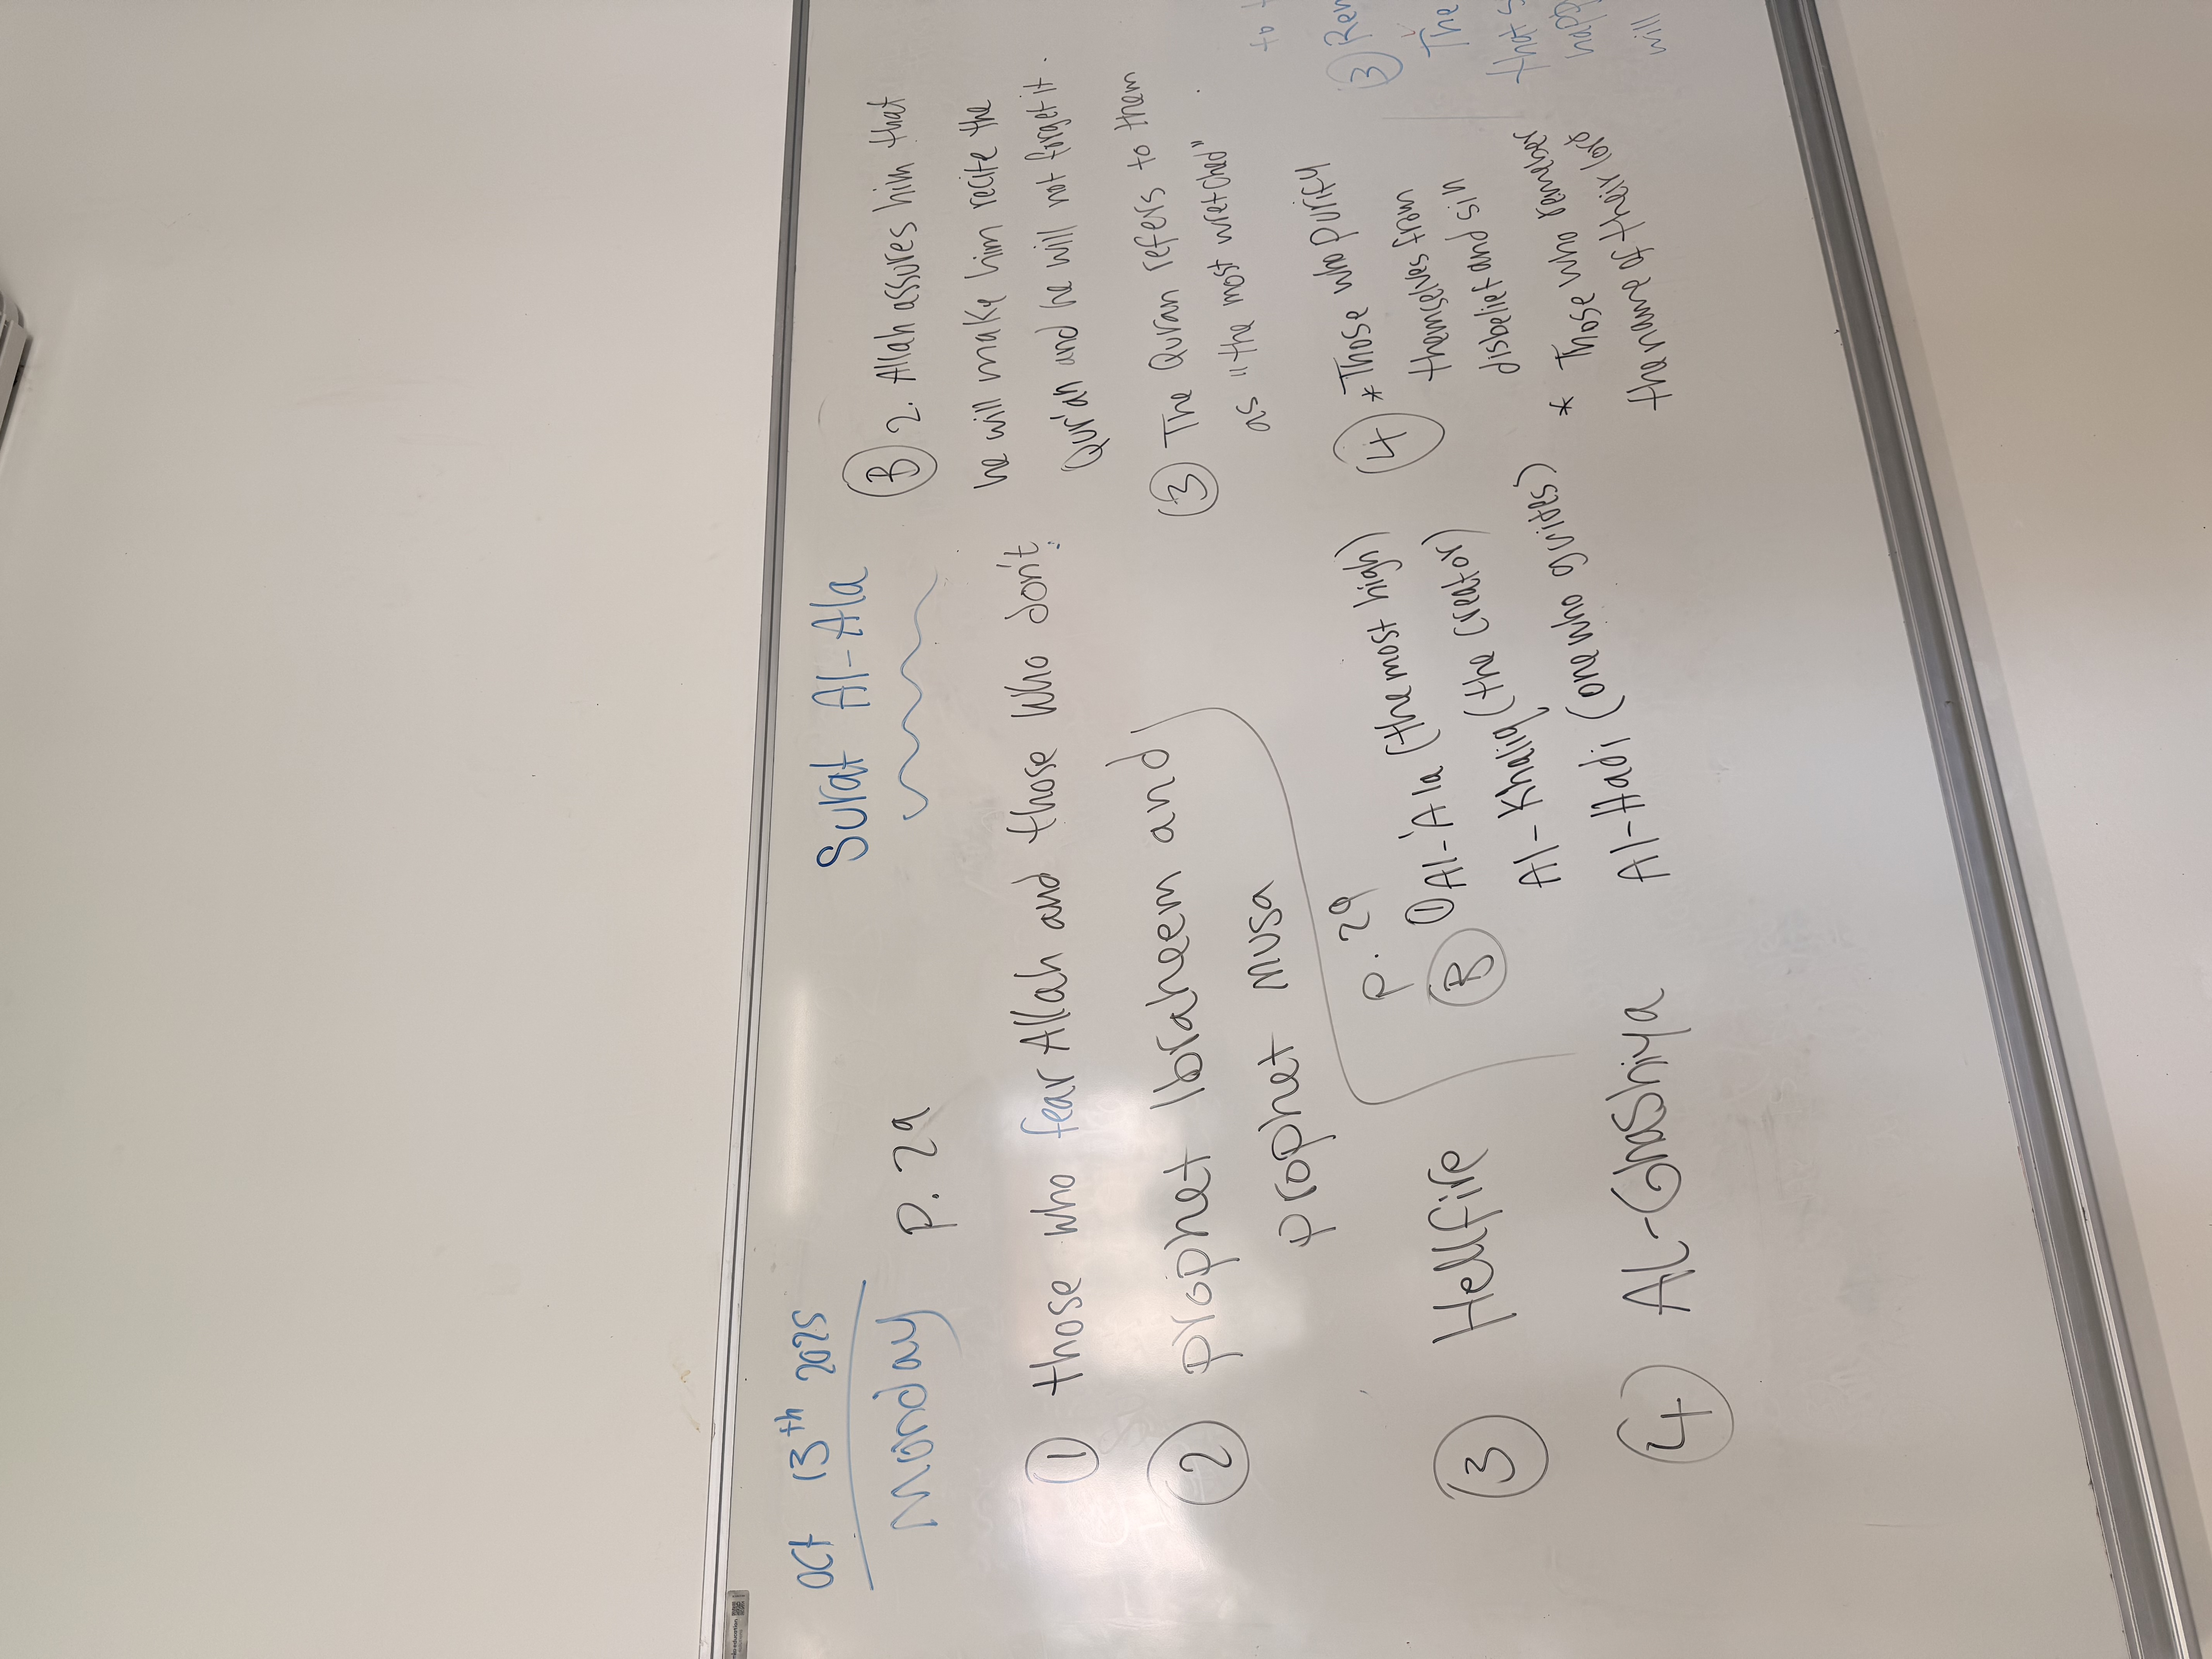 oct 13th 2025
Monday
P. 29
Surat Al-Ala
① those who fear Allah and those who don't.
② prophet Ibraheem and
prophet musa
③ Hellfire
④ AL-Ghashiya
P. 29
Ⓑ ① Al-'Ala (the most high)
Al-Khaliq (the creator)
Al-Hadi (one who guides)
Ⓑ 2. Allah assures him that
he will make him recite the
Qur'an and he will not forget it.
③ The Quran refers to them
as "the most wretched".
④ *Those who purify
themselves from
disbelief and sin
* Those who remember
the name of their lord
to
③
The
that
will